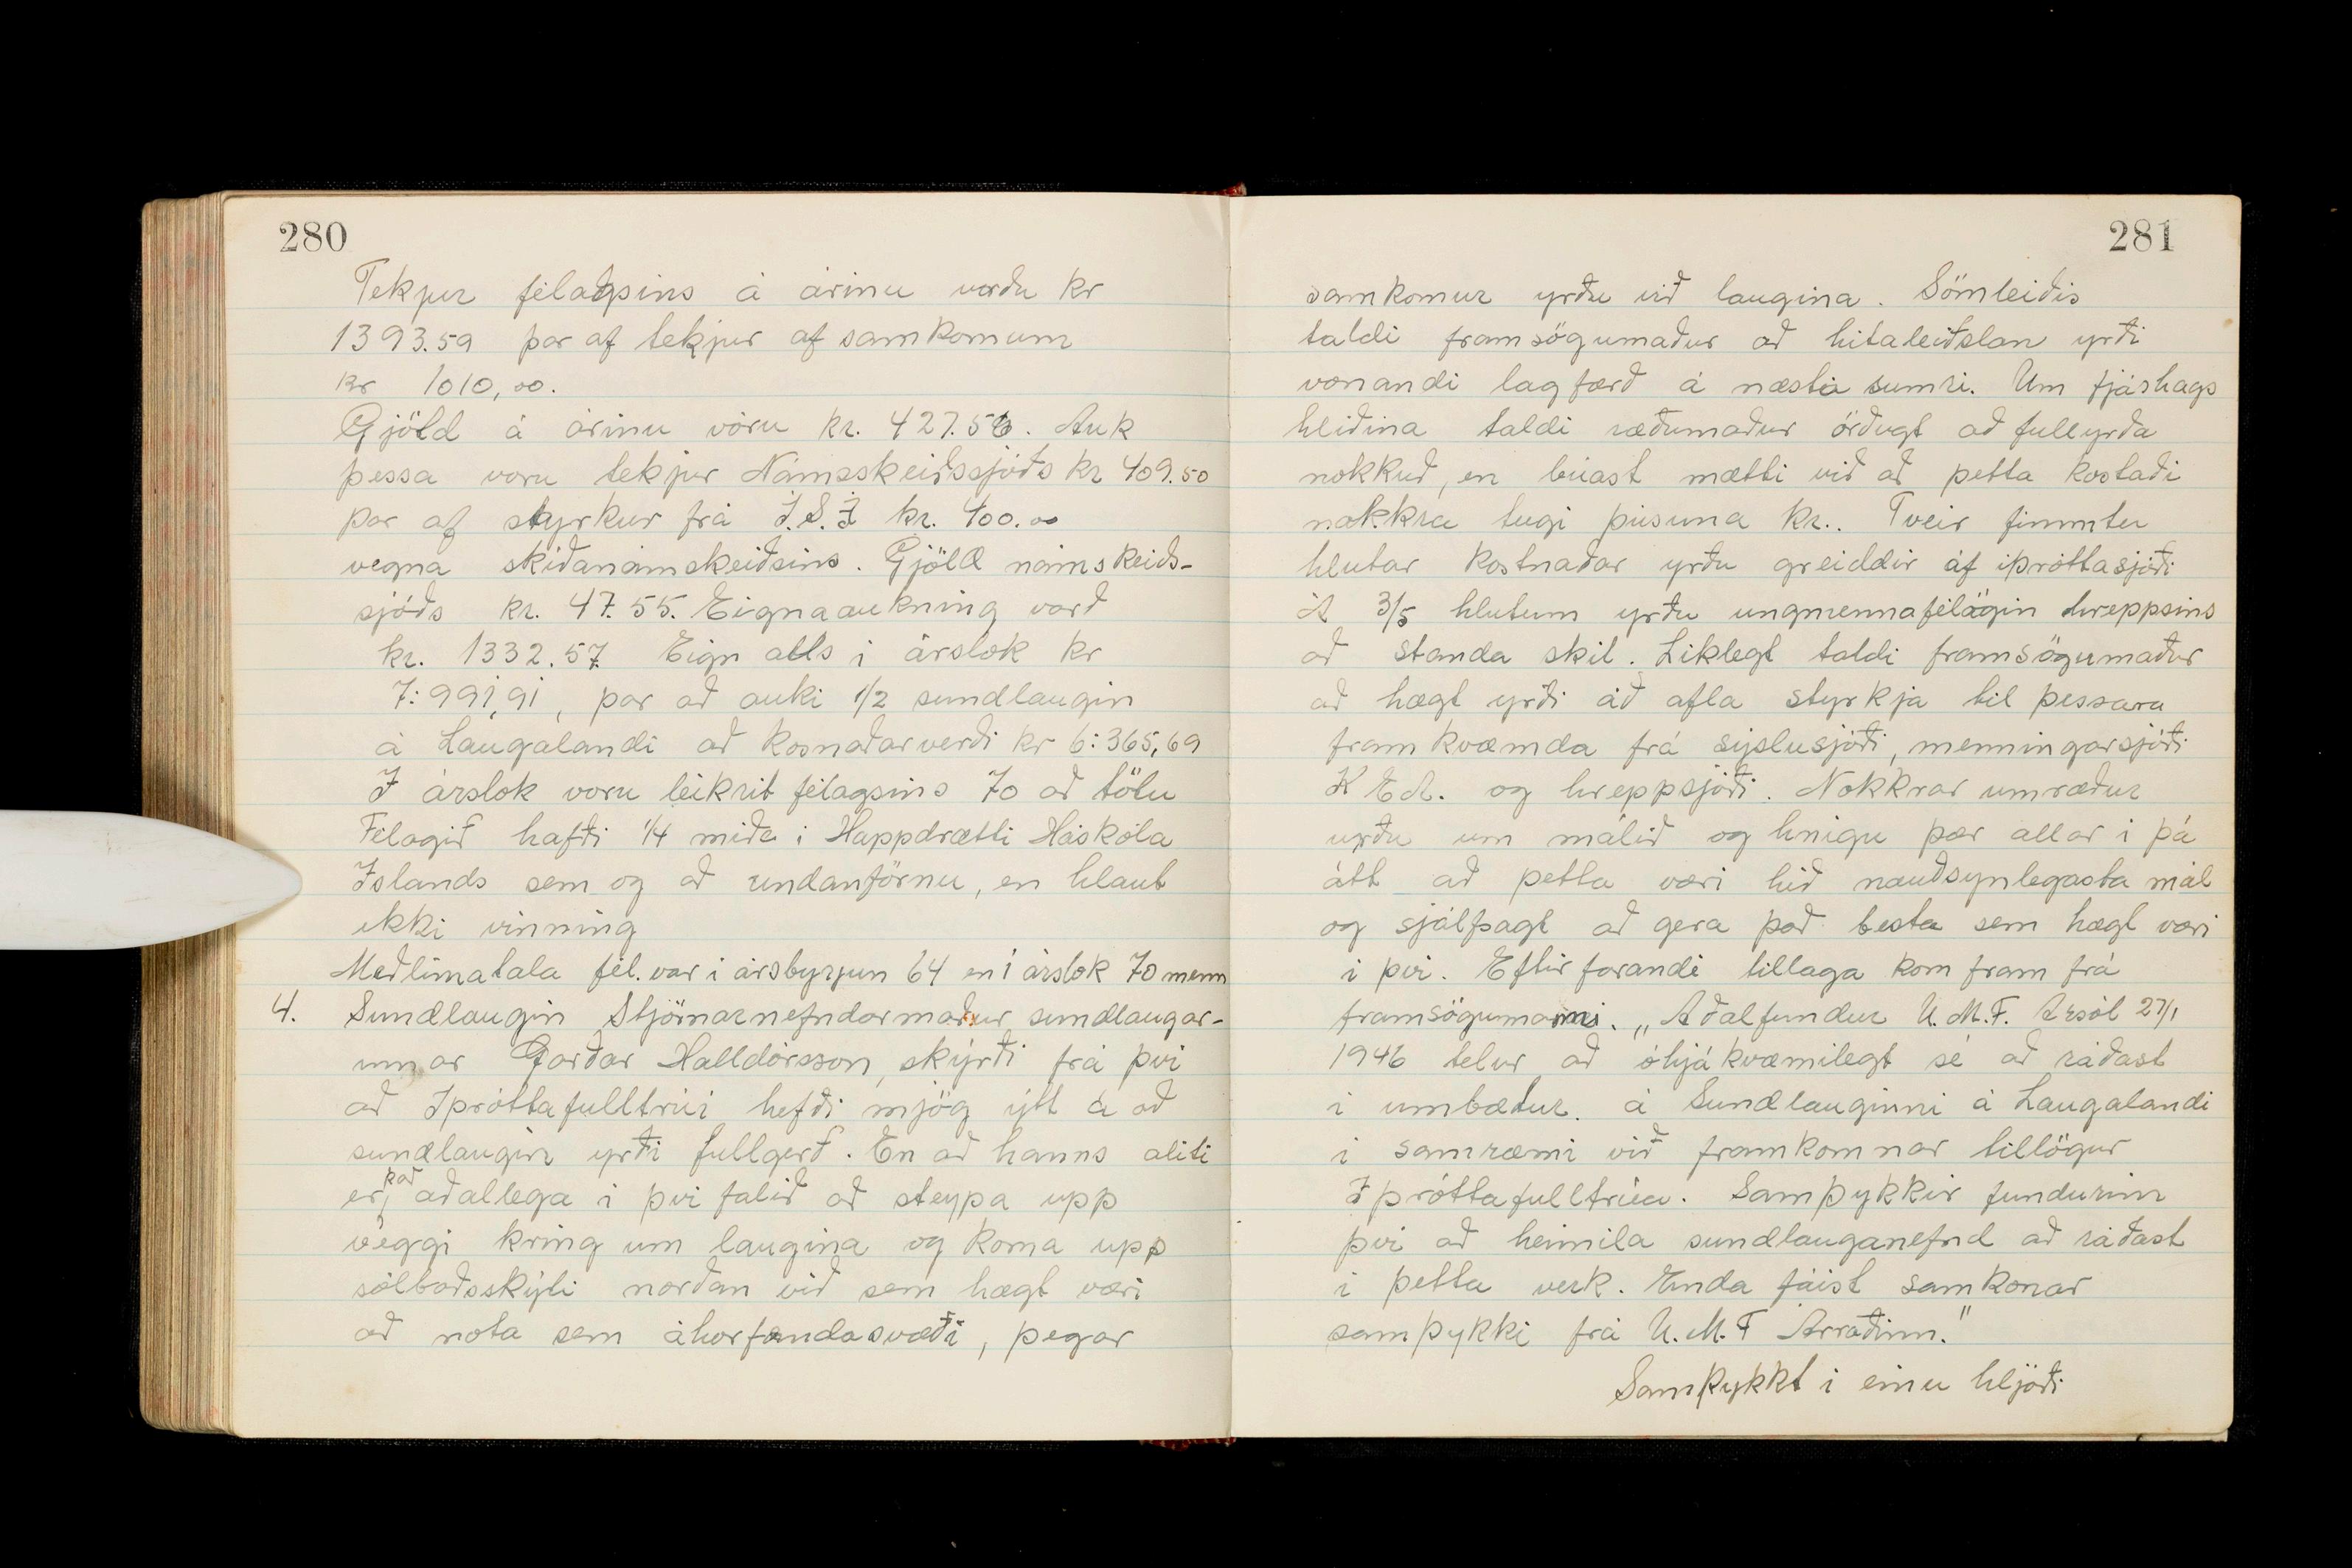 280
Tekjur félagsins á árinu urðu kr
1393.59 þar af tekjur af samkomum
kr 1010,00.
Gjöld á árinu vóru kr. 427.56. Auk
þessa voru tekjur Námsskeiðssjóðs kr 409.50
þar af styrkur frá Í.S.Í kr. 400.00
vegna skíðanámskeiðsins. Gjöld námskeiðs-
sjóðs kr. 47.55. Eignaaukning varð
kr. 1332.57. Eign alls í árslok kr
7:991,91, þar að auki 1/2 sundlaugin
á Laugalandi að kosnaðarverði kr 6:365,69
Í árslok voru leikrit félagsins 70 að tölu
Félagið hafði 1/4 miða í Happdrætti Háskóla
Íslands sem og að undanförnu, en hlaut
ekki vinning
Meðlimatala fél. var í ársbyrjun 64 en í árslok 70 menn
4. Sundlaugin Stjórnarnefndarmaður sundlaugar-
innar Garðar Halldórsson, skýrði frá því
að Íþróttafulltrúi hefði mjög ýtt á að
sundlaugin yrði fullgerð. En að hanns áliti
er það aðallega í því falið að steypa upp
veggi kring um laugina og koma upp
sólbaðsskýli norðan við sem hægt væri
að nota sem áhorfendasvæði, þegar
281
samkomur yrðu við laugina. Sömleiðis
taldi framsögumaður að hitaleiðslan yrði
vonandi lagfærð á næsta sumri. Um fjárhags
hliðina taldi ræðumaður örðugt að fullyrða
nokkuð, en búast mætti við að þetta kostaði
nokkra tugi þúsuna kr.. Tveir fimmtu
hlutar kostnaðar yrðu greiddir af íþróttasjóði
Á 3/5 hlutum yrðu ungmennafélögin hreppsins
að standa skil. Líklegt taldi framsögumaður
að hægt yrði að afla styrkja til þessara
framkvæmda frá sýslusjóði, menningarsjóði
K E A. og hreppsjóði. Nokkrar umræður
urðu um málið og hnigu þær allar í þá
átt að þetta væri hið nauðsynlegasta mál
og sjálfsagt að gera það besta sem hægt væri
í því. Eftirfarandi tillaga kom fram frá
framsögumanni. „Aðalfundur U.M.F. Ársól 27/1
1946 telur að óhjákvæmilegt sé að ráðast
í umbætur á Sundlauginni á Laugalandi
í samræmi við framkomnar tillögur
Íþróttafulltrúa. Samþykkir fundurinn
því að heimila sundlauganefnd að ráðast
í þetta verk. Enda fáist samkonar
samþykki frá U.M.F Árroðinn."
Samþykkt í einu hljóði